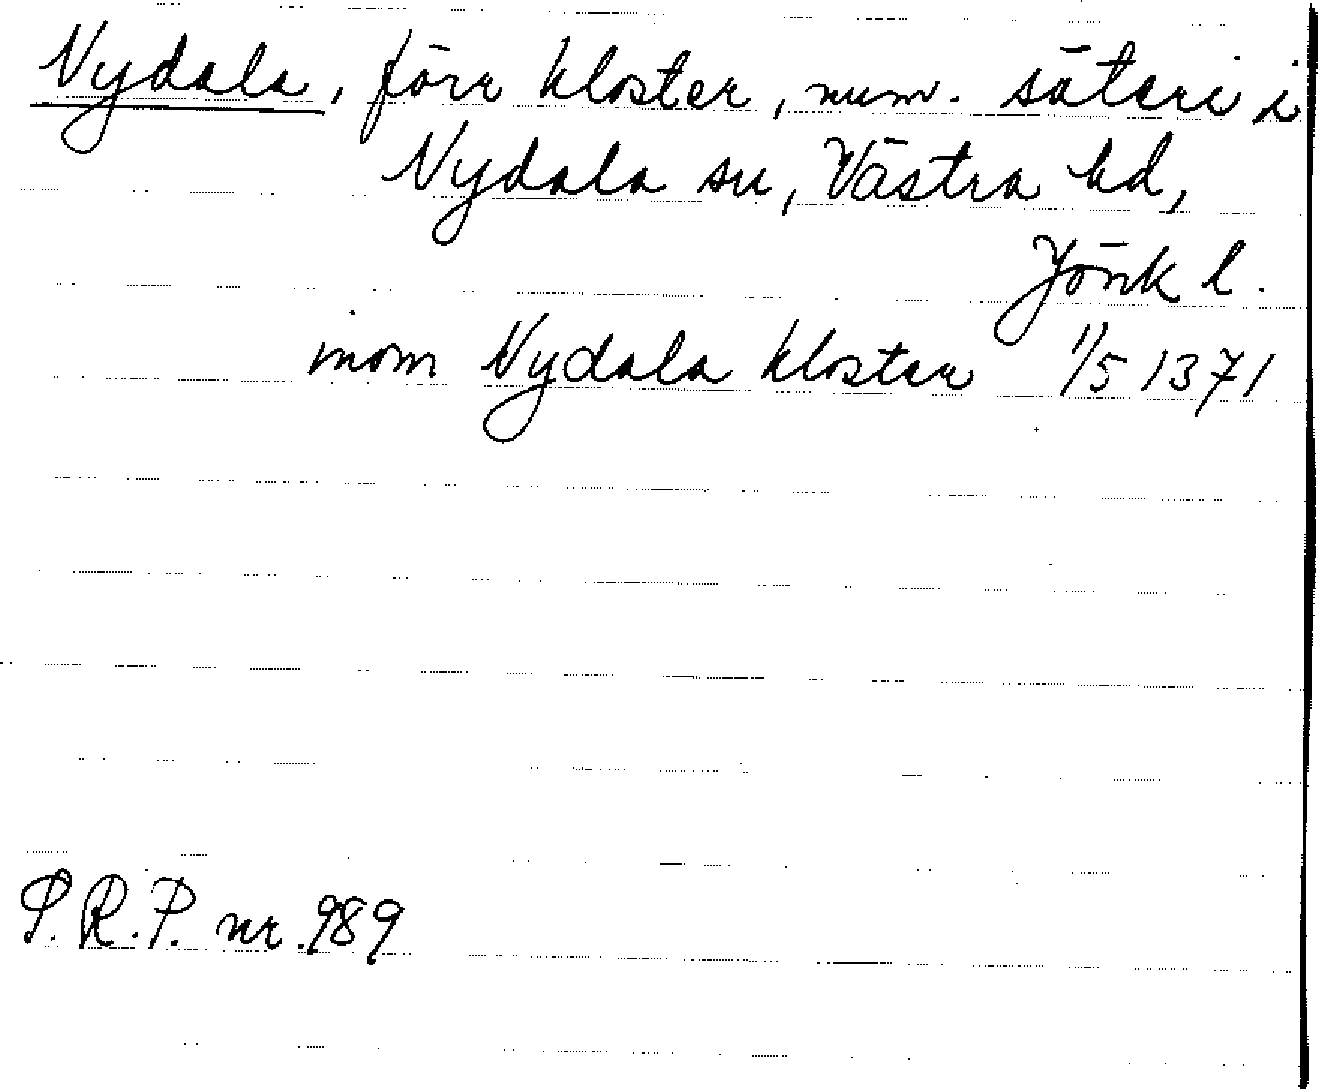 Nydala, förr kloster, num. säteri i
Nydala sn, Västra hd,
Jönk l.
inom Nydala kloster 1/5 1371
S.R.P. nr. 989